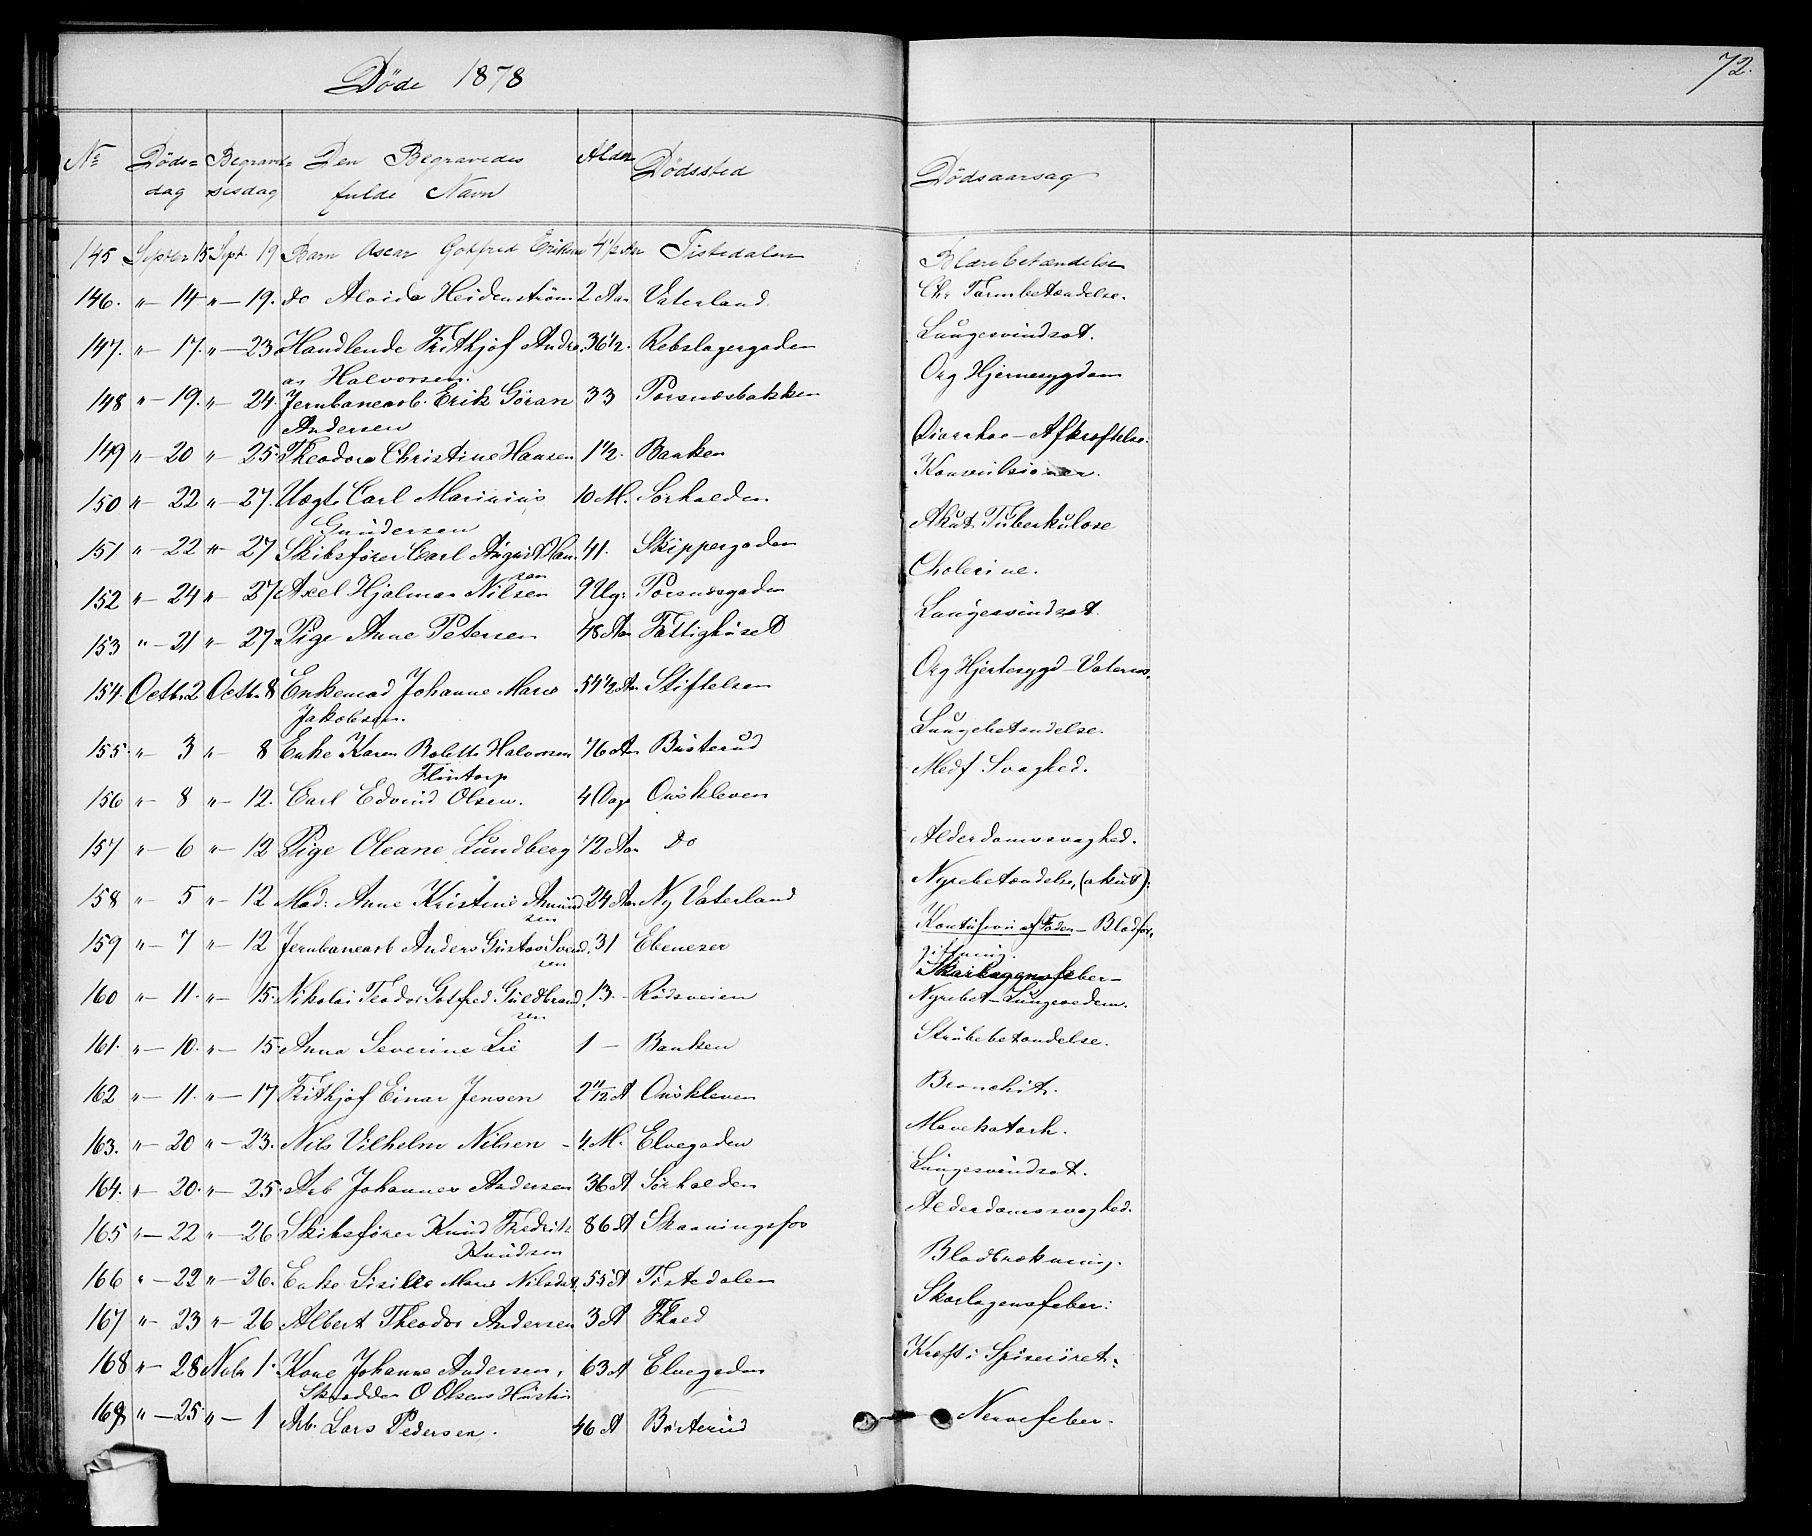 Døde 1878
72.
No Døds= Begravel= Den Begravedes Alder Dødssted Dødsaarsag
dag sesdag fulde Navn
145 Septbr 15 Sept. 19 Barn Oscar Gotfred Eriksen 4 1/2 Aar Tistedalen Blærebetændelse
146. " - 14 " - 19. do Alvida Heidenstrøm 2 Aar Vaterland. Chr Tarmbetændelse.
147. " - 17. " - 23 Handlende Frithjof Andre 36 1/2. Rebslagergaden Lungesvindsot.
as Halvorsen.
148 " - 19. " - 24. Jernbanearb. Erik Göran 33 Torsnæsbakken Org Hjernesygdom
Andersen
149 " - 20 " - 25. Theodora Christine Hansen 1 1/2. Banken Diarrhoe - Afkræftelse.
150 " - 22 " - 27. Uægte Carl Marinius 10 M. Sørhalden. Konvulsioner.
Gundersen
151 " - 22 " - 27 Skibsfører Carl August Han 41. Skippergaden Akut Tuberkulose
sen
152 " - 24 " - 27 Axel Hjalmar Nilsen 9 Ug. Torsnesgaden Cholerine.
153 " - 21 " - 27 Pige Anne Petersen 48 Aar Fattighuset Lungesvindsot
154. Octbr. 2 Octbr. 8 Enkemad Johanne Marie 54 1/2 Aar Stiftelsen Org Hjertesygd - Vatersot.
Jakobsen.
155. " 3 " 8 Enke Karen Bolette Halvorsen 76 Aar Busterud Lungebetændelse.
Flintorp
156 " - 8 " - 12. Carl Edvind Olsen. 4 Dage Ouskleven Medf Svaghed.
157 " - 6 " - 12 Pige Oleane Lundberg 72 Aar do Alderdomssvaghed.
158 " - 5 " - 12 Mad. Anne Kristine Amund 24 Aar Ny Vaterland Nyrebetændelse, (akut).
sen
159 " - 7 " - 12 Jernbanearb Anders Gustav Svend 31 Ebeneser Kontusion af Foden - Blodfor,
sen giftning.
160 " - 11. " - 15. Nikolai Teodor Gotfred Guldbrand 13. - Rødsveien Skarlagensfeber -
sen Nyrebet - Lungeoedem.
161. " - 10. " - 15. Anna Severine Lie 1 - Banken Strubebetændelse.
162 " - 11. " - 17 Frithjof Einar Jensen 2 11/12 A Ouskleven Bronchit.
163. " - 20 " - 23. Nils Vilhelm Nilsen - 4. M. Elvegaden Mavekatarh.
164. " - 20. " - 25. Arb Johannes Andersen 36 A Sørhalden Lungesvindsot.
165 " - 22 " - 26 Skibsfører Knud Fredrik 86 A Skanningsfos Alderdomssvaghed.
Knudsen
166 " - 22 " - 26. Enke Sisille Marie Nilsdat. 55 A Tistedalen Blodbrækning.
167 " - 23 " - 26 Albert Theodor Andersen 3 A Flaed Skarlagensfeber.
168 " - 28 Nobr 1. Kone Johanne Andersen, 63 A Elvegaden Kræft i Spiserøret.
Skrædder O Olsens Hustru
169 " - 25 " - 1 Arb. Lars Pedersen. 46 A Busterud Nervefeber.